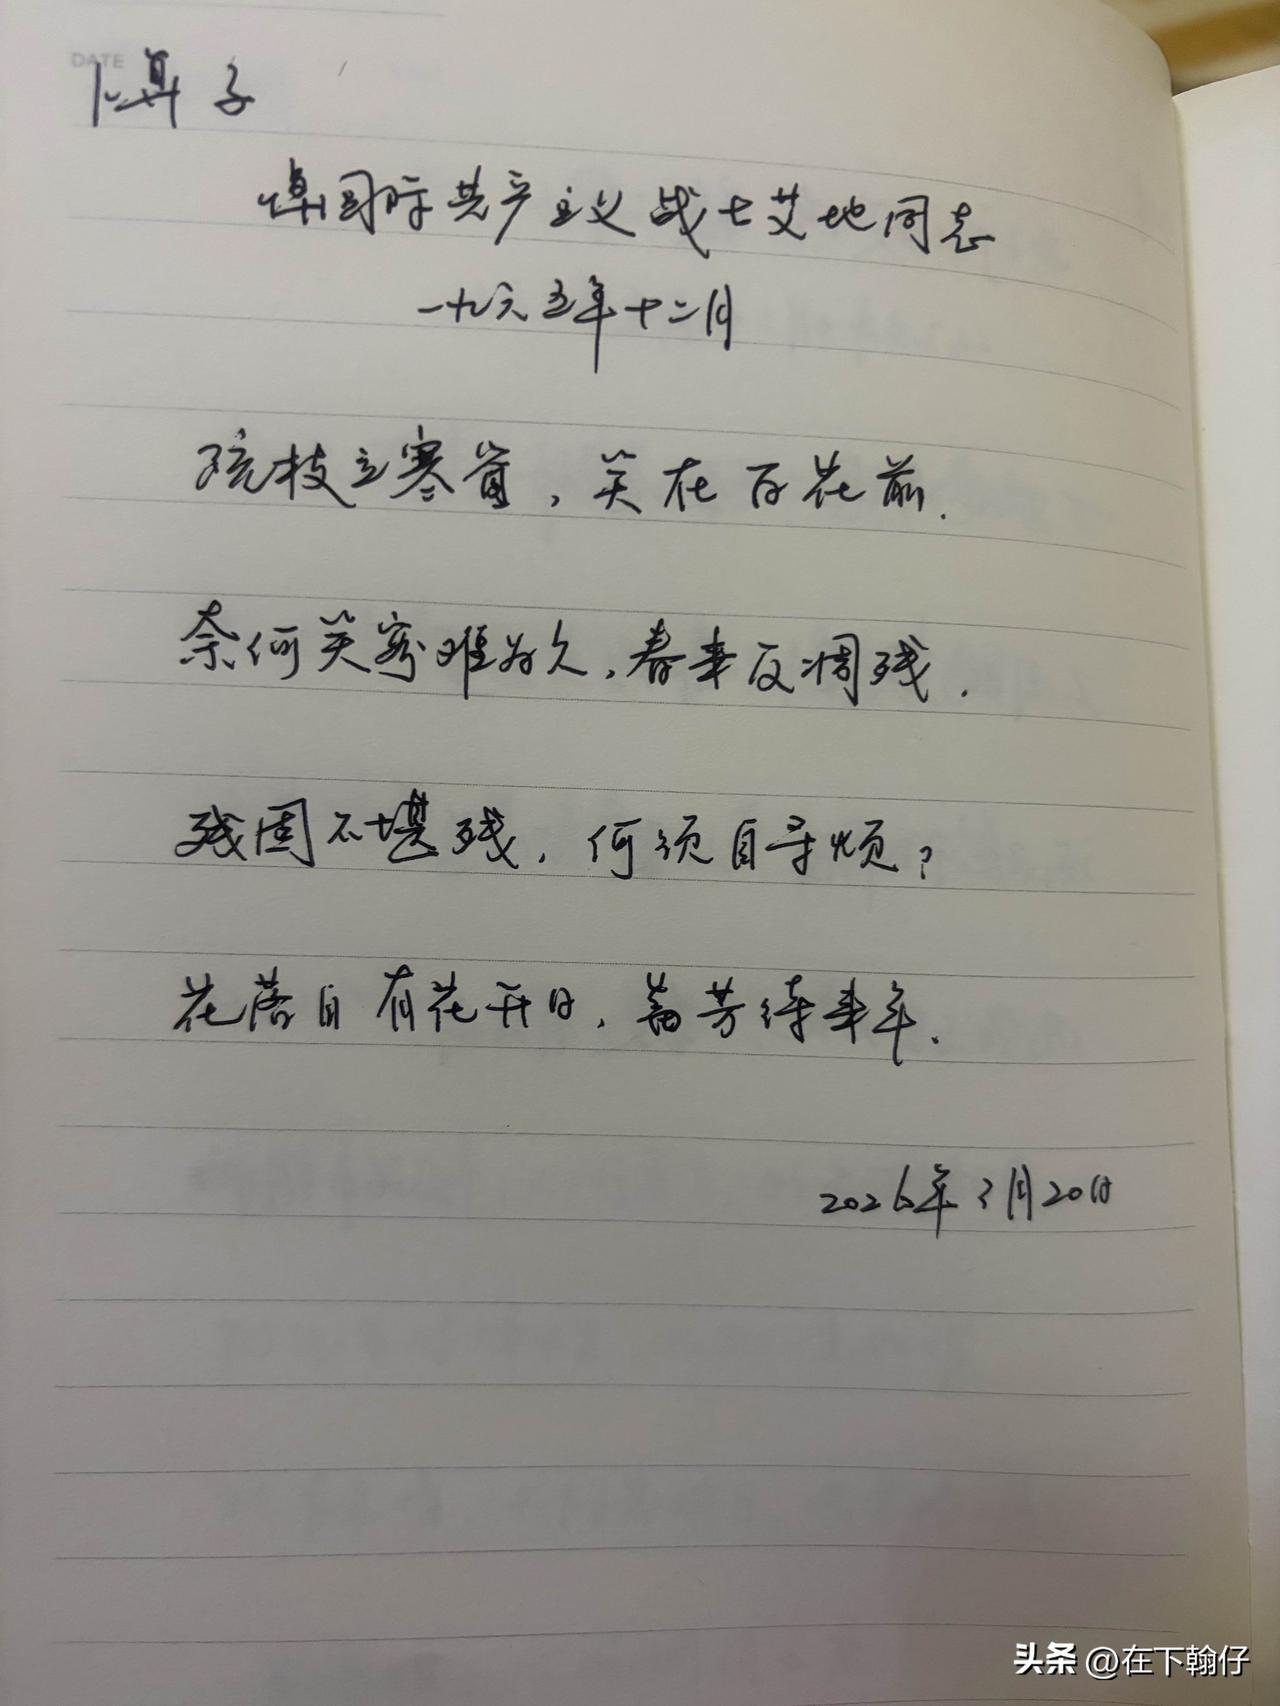 DATE
卜算子
悼国际共产主义战士艾地同志
一九六五年十二月
疏枝立寒窗，笑在百花前.
奈何笑容难为久，春来反凋残.
残固不堪残，何须自寻烦？
花落自有花开日，蓄芳待来年.
2026年3月20日
头条 @在下翰仔